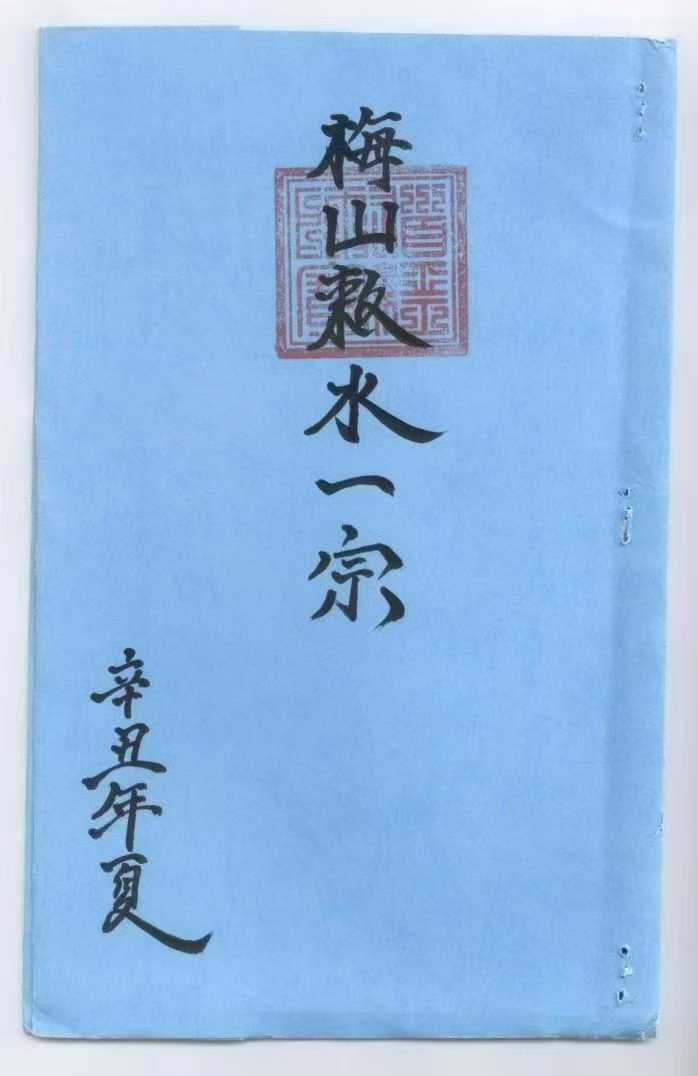 梅山敕水一宗
辛丑年夏